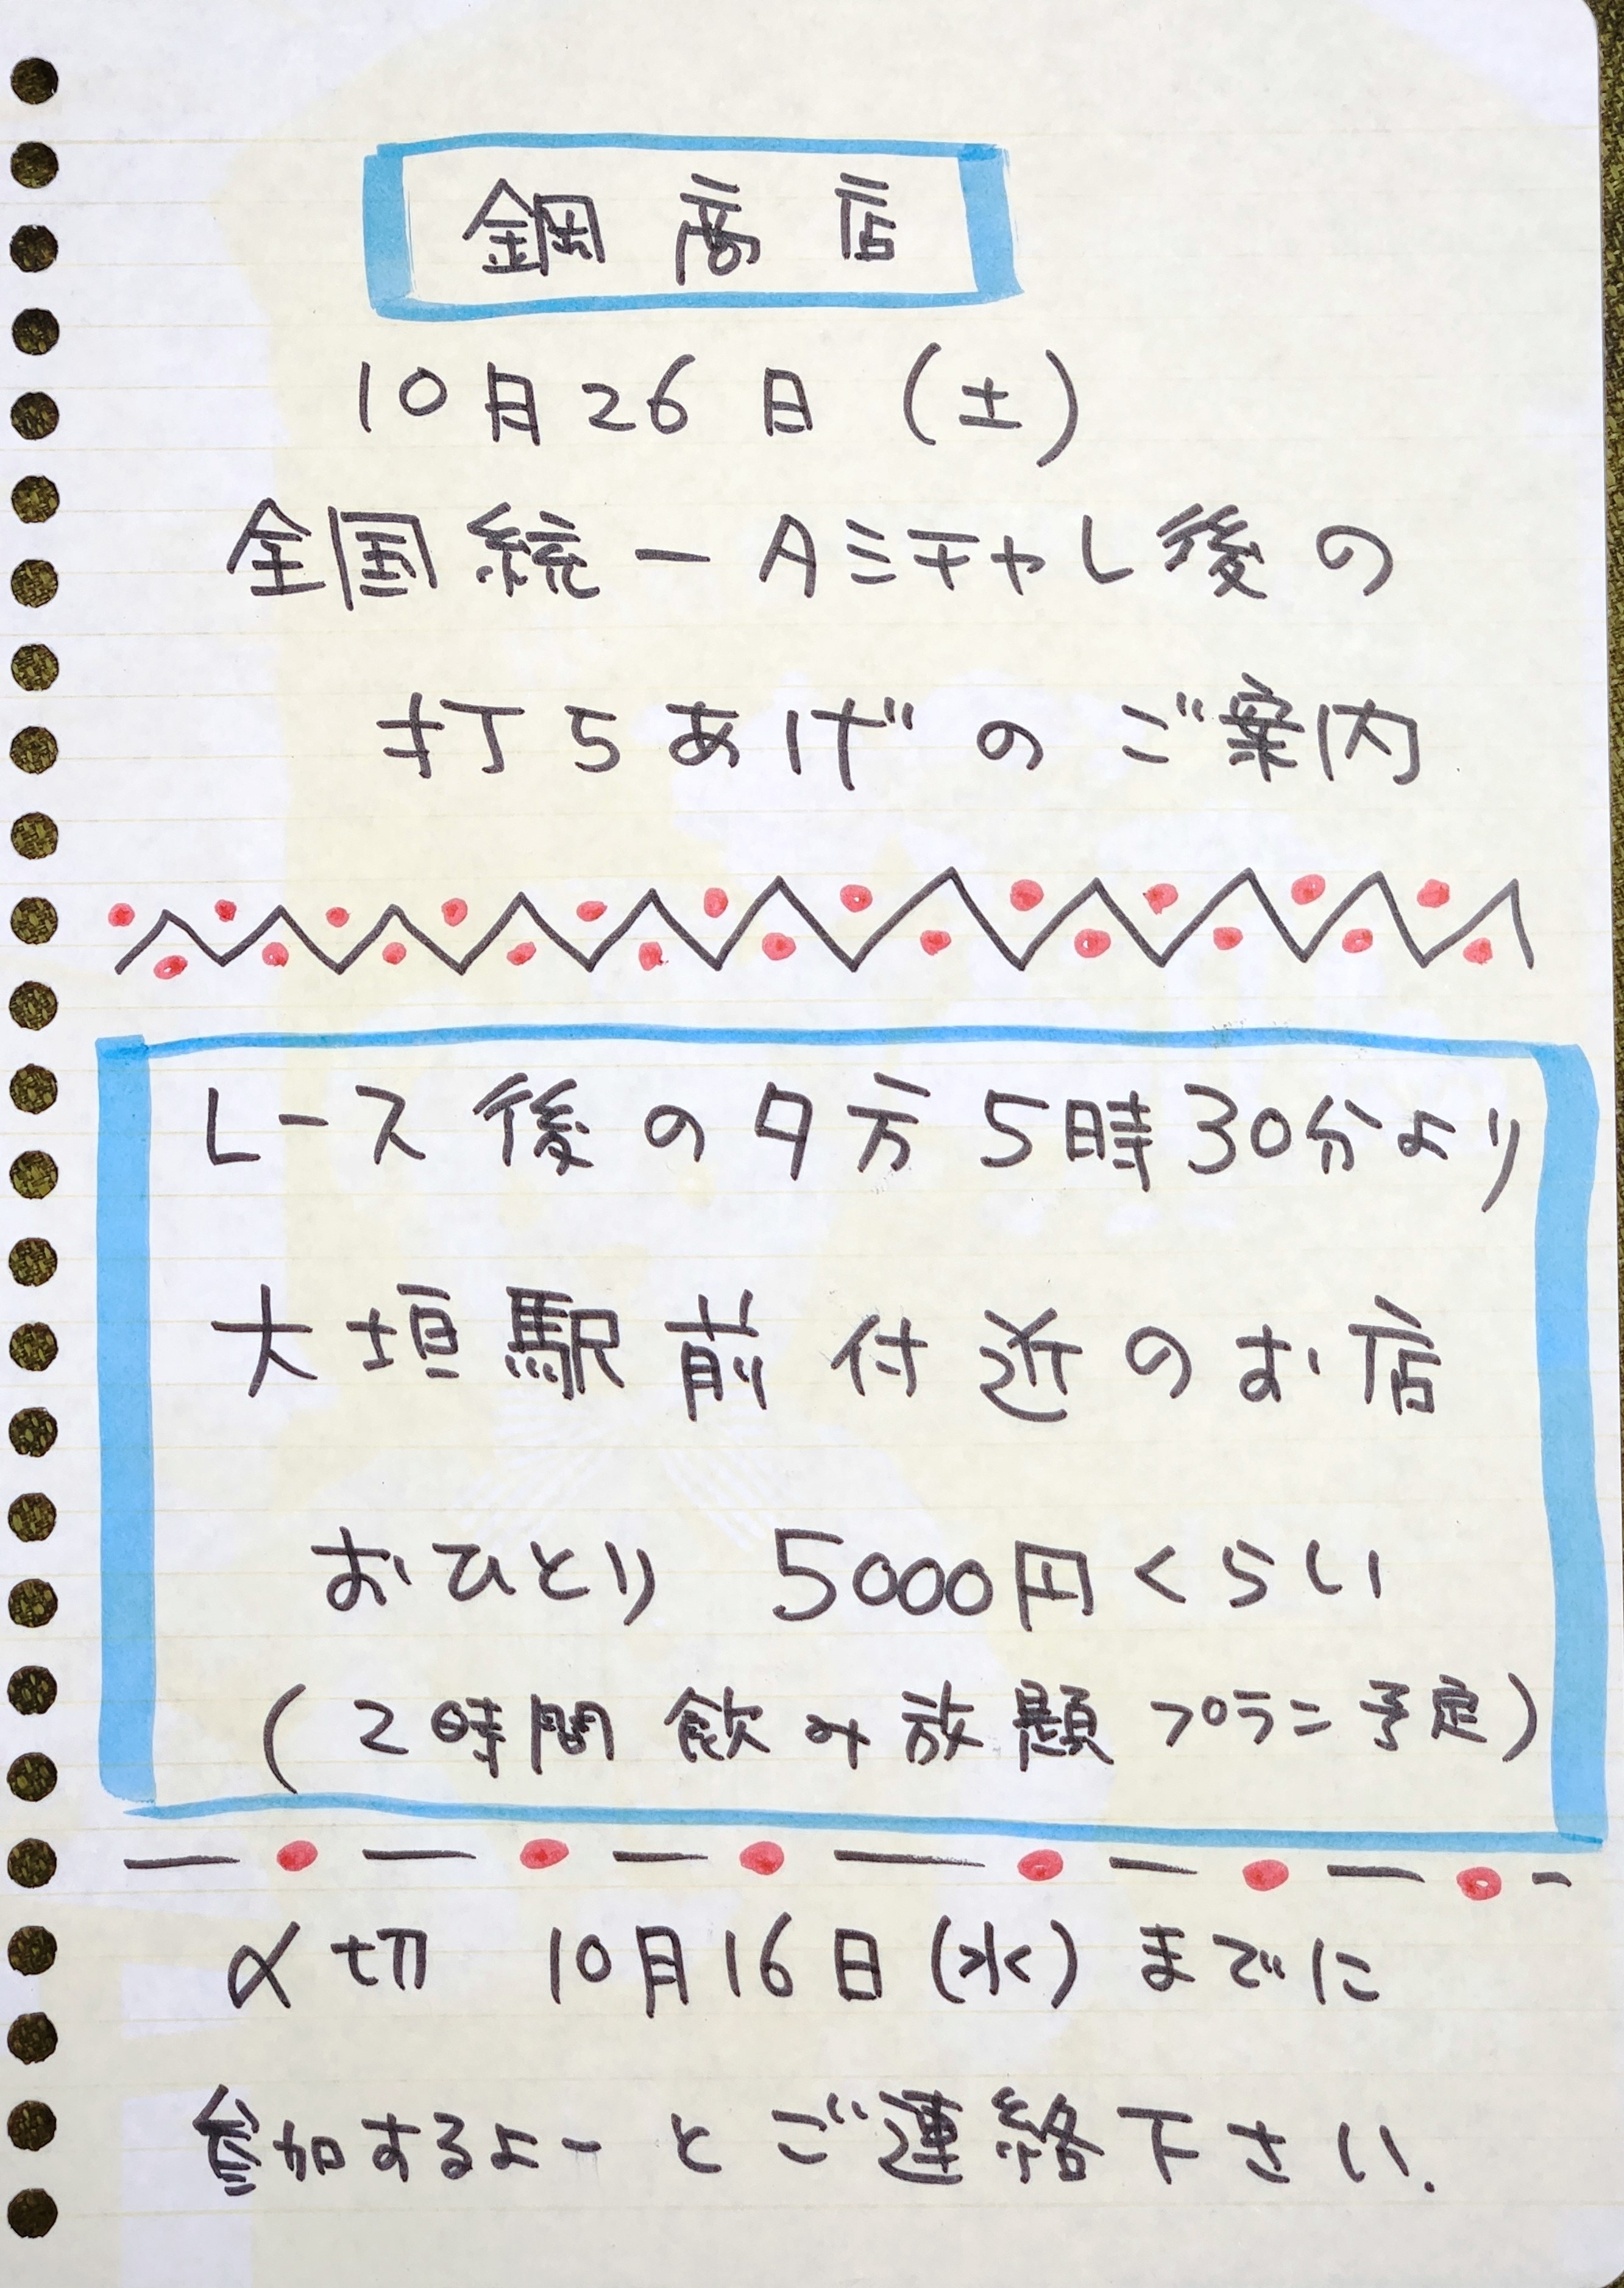 鋼商店
10月26日(土)
全国統一Aミチャレ後の
打ちあげのご案内
レース後の夕方5時30分より
大垣駅前付近のお店
おひとり 5000円くらい
(2時間飲み放題プラン予定)
〆切 10月16日(水)までに
参加するよーとご連絡下さい.